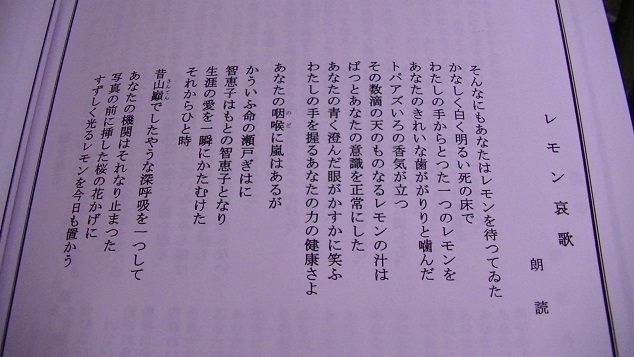 レモン哀歌
朗読
そんなにもあなたはレモンを待つてゐた
かなしく白く明るい死の床で
わたしの手からとつた一つのレモンを
あなたのきれいな歯ががりりと噛んだ
トパアズいろの香気が立つ
その数滴の天のものなるレモンの汁は
ぱつとあなたの意識を正常にした
あなたの青く澄んだ眼がかすかに笑ふ
わたしの手を握るあなたの力の健康さよ
あなたの咽喉に嵐はあるが
のど
かういふ命の瀬戸ぎはに
智恵子はもとの智恵子となり
生涯の愛を一瞬にかたむけた
それからひと時
昔山巓でしたやうな深呼吸を一つして
さんてん
あなたの機関はそれなり止まつた
写真の前に挿した桜の花かげに
すずしく光るレモンを今日も置かう